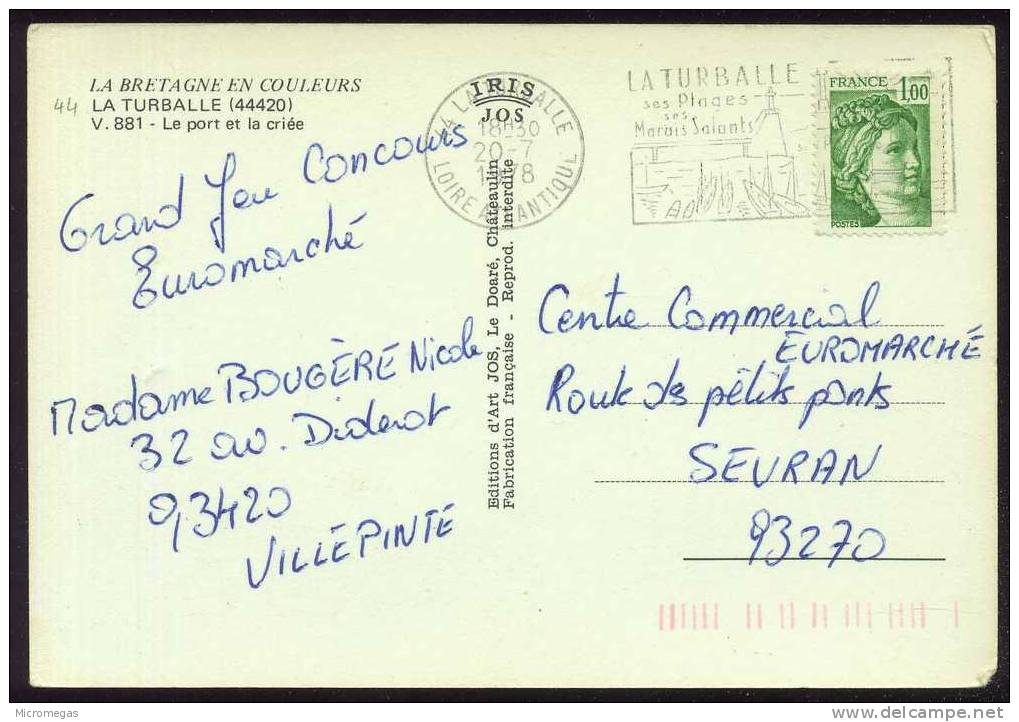 LA BRETAGNE EN COULEURS
44 LA TURBALLE (44420)
V. 881 - Le port et la criée
Grand Jeu Concours
Euromarché
Madame BOUGÈRE Nicole
32 av. Diderot
93420
VILLEPINTE
IRIS
JOS
Editions d'Art JOS, Le Doaré, Châteaulin
Fabrication française - Reprod. interdite
44 LA TURBALLE
18H30
20-7
1978
LOIRE ATLANTIQUE
LA TURBALLE
ses Plages -
ses
Marais Salants
FRANCE 1,00
POSTES
Centre Commercial
EUROMARCHÉ
Route des pétits ponts
SEVRAN
93270
Micromegas
www.delcampe.net